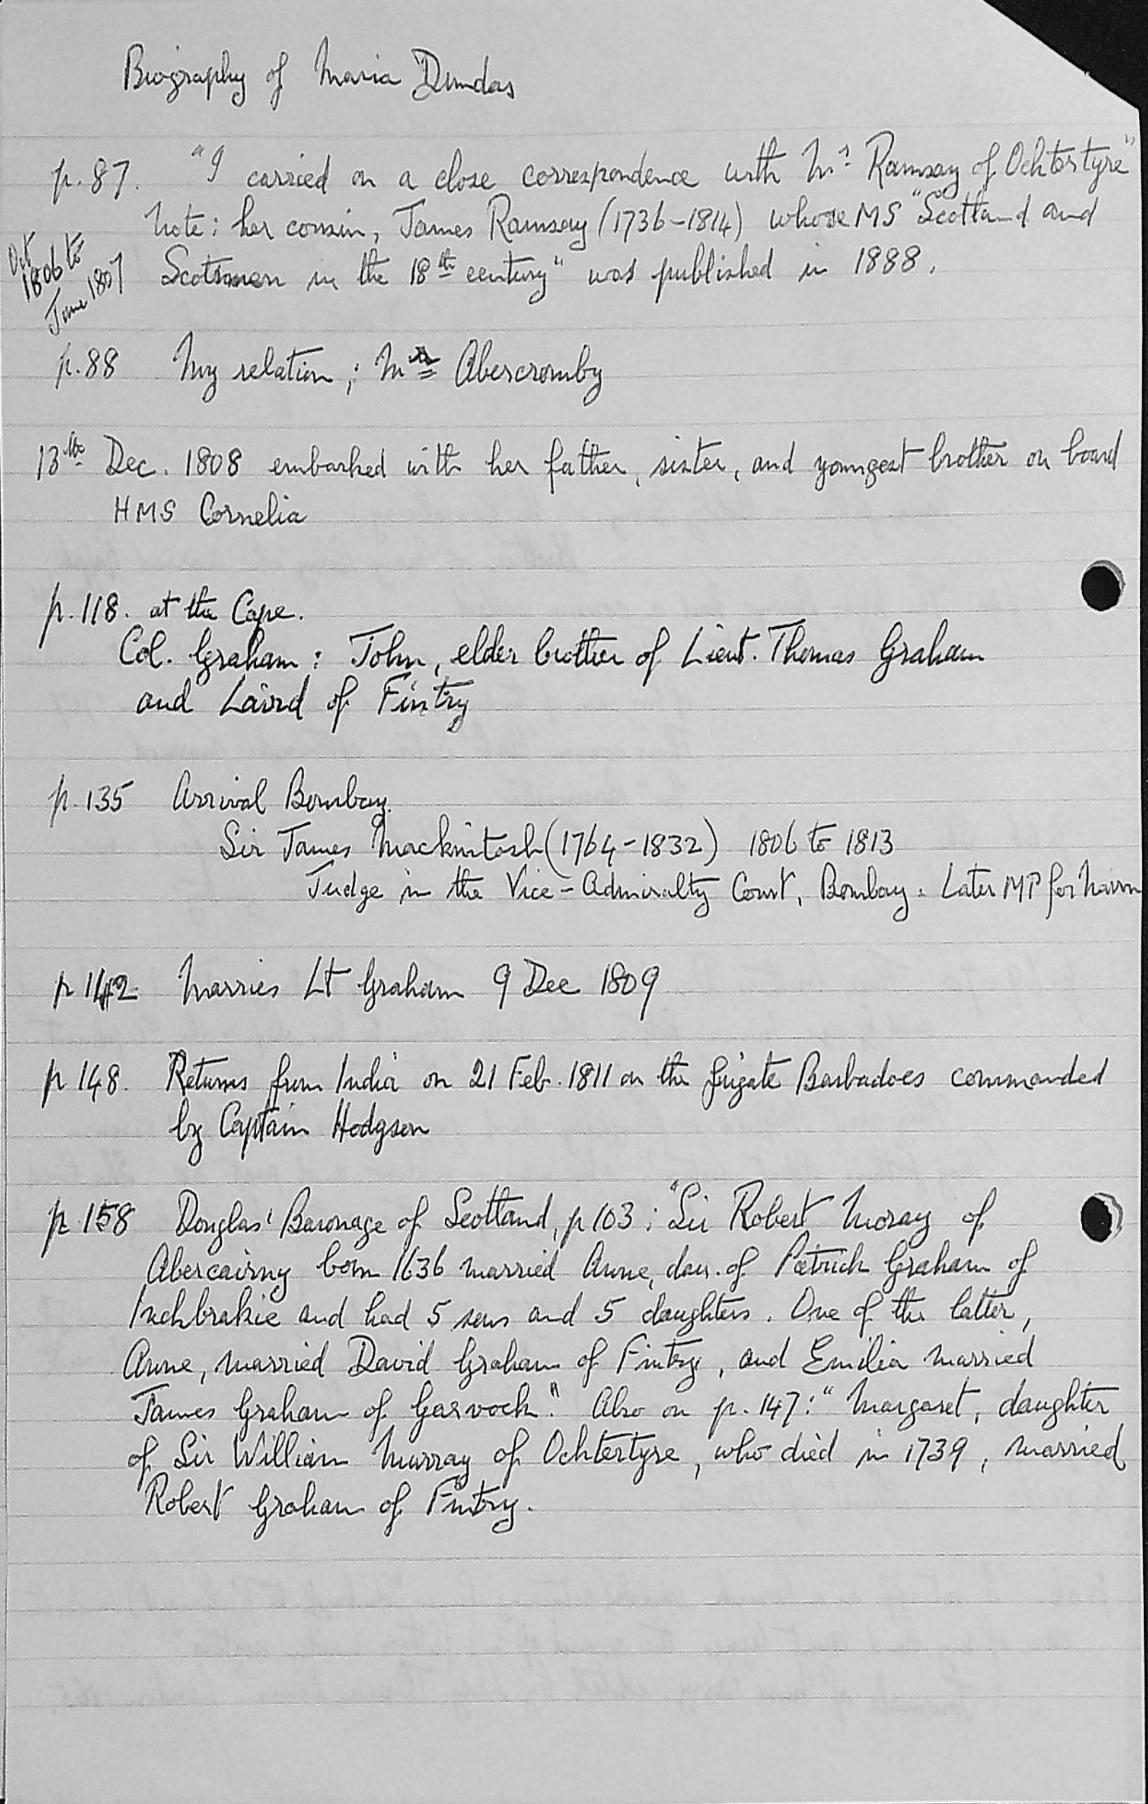 Biography of Maria Dundas
p. 87. "I carried on a close correspondence with Mr Ramsay of Ochtertyre"
Note: her cousin, James Ramsay (1736-1814) whose MS "Scotland and
Oct 1806 to June 1807
Scotsmen in the 18th century" was published in 1888.
p. 88 My relation, : Mrs Abercromby
13th Dec. 1808 embarked with her father, sister, and youngest brother on board
HMS Cornelia
p. 118. at the Cape.
Col. Graham: John, elder brother of Lieut. Thomas Graham
and Laird of Fintry
p. 135 Arrival Bombay.
Sir James Mackintosh (1764-1832) 1806 to 1813
Judge in the Vice-Admiralty Court, Bombay. Later MP for Nairn
p 142 Marries Lt Graham 9 Dec 1809
p 148. Returns from India on 21 Feb. 1811 on the frigate Barbadoes commanded
by Captain Hodgson
p 158 Douglas' Baronage of Scotland, p 103: "Sir Robert Moray of
Abercairny born 1636 married Anne, dau. of Patrick Graham of
Inchbrakie and had 5 sons and 5 daughters. One of the latter,
Anne, married David Graham of Fintry, and Emilia married
James Graham of Garvock." Also on p. 147: "Margaret, daughter
of Sir William Murray of Ochtertyre, who died in 1739, married
Robert Graham of Fintry.